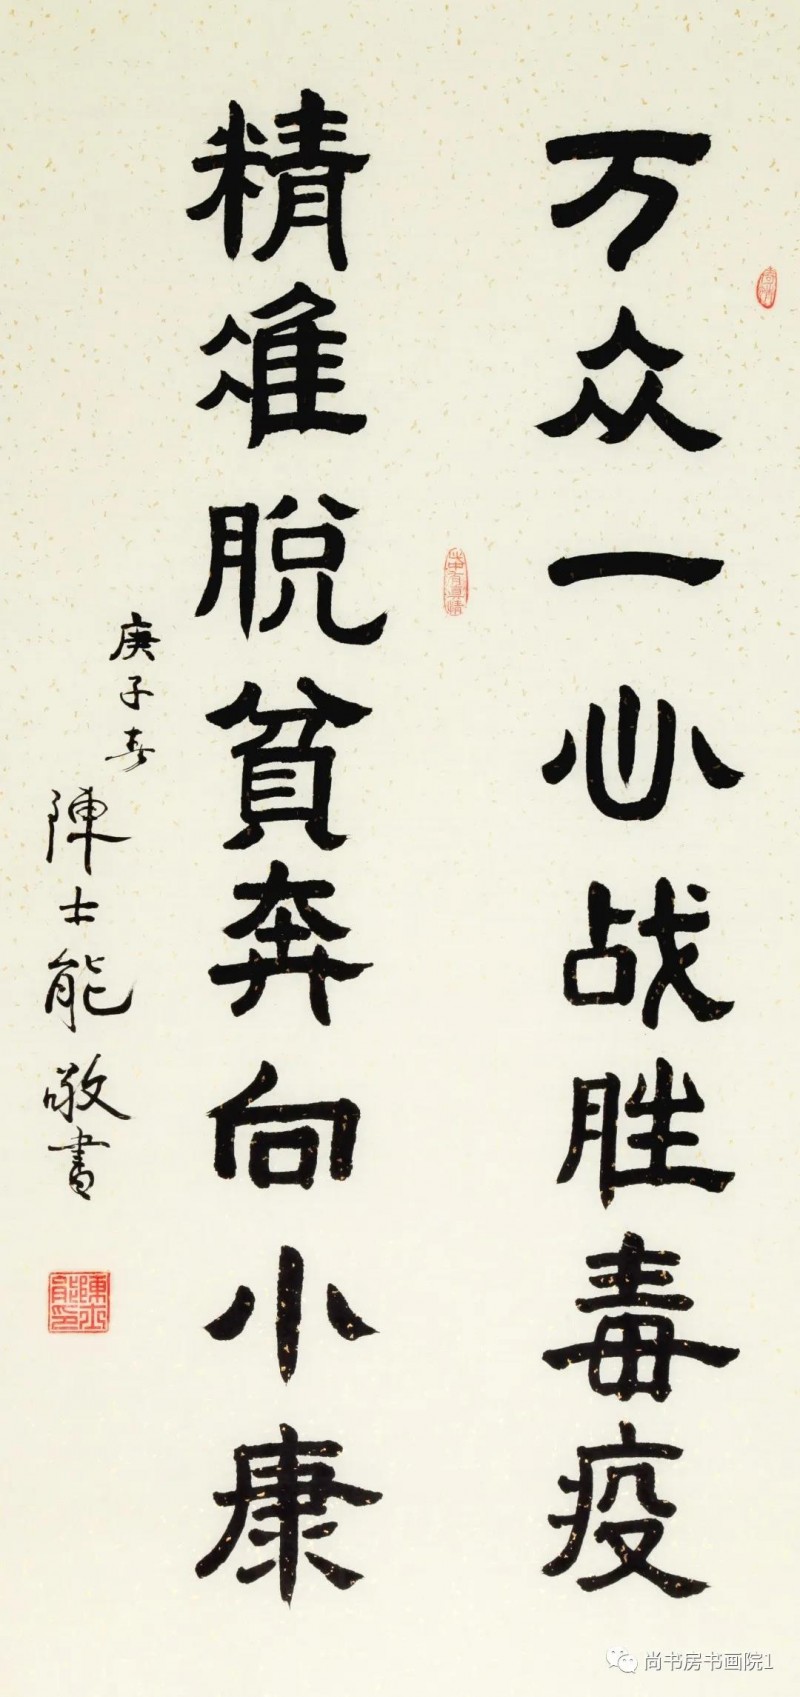 万众一心战胜毒疫
精准脱贫奔向小康
庚子春
陈士能敬書
陳士能印
尚书房书画院1